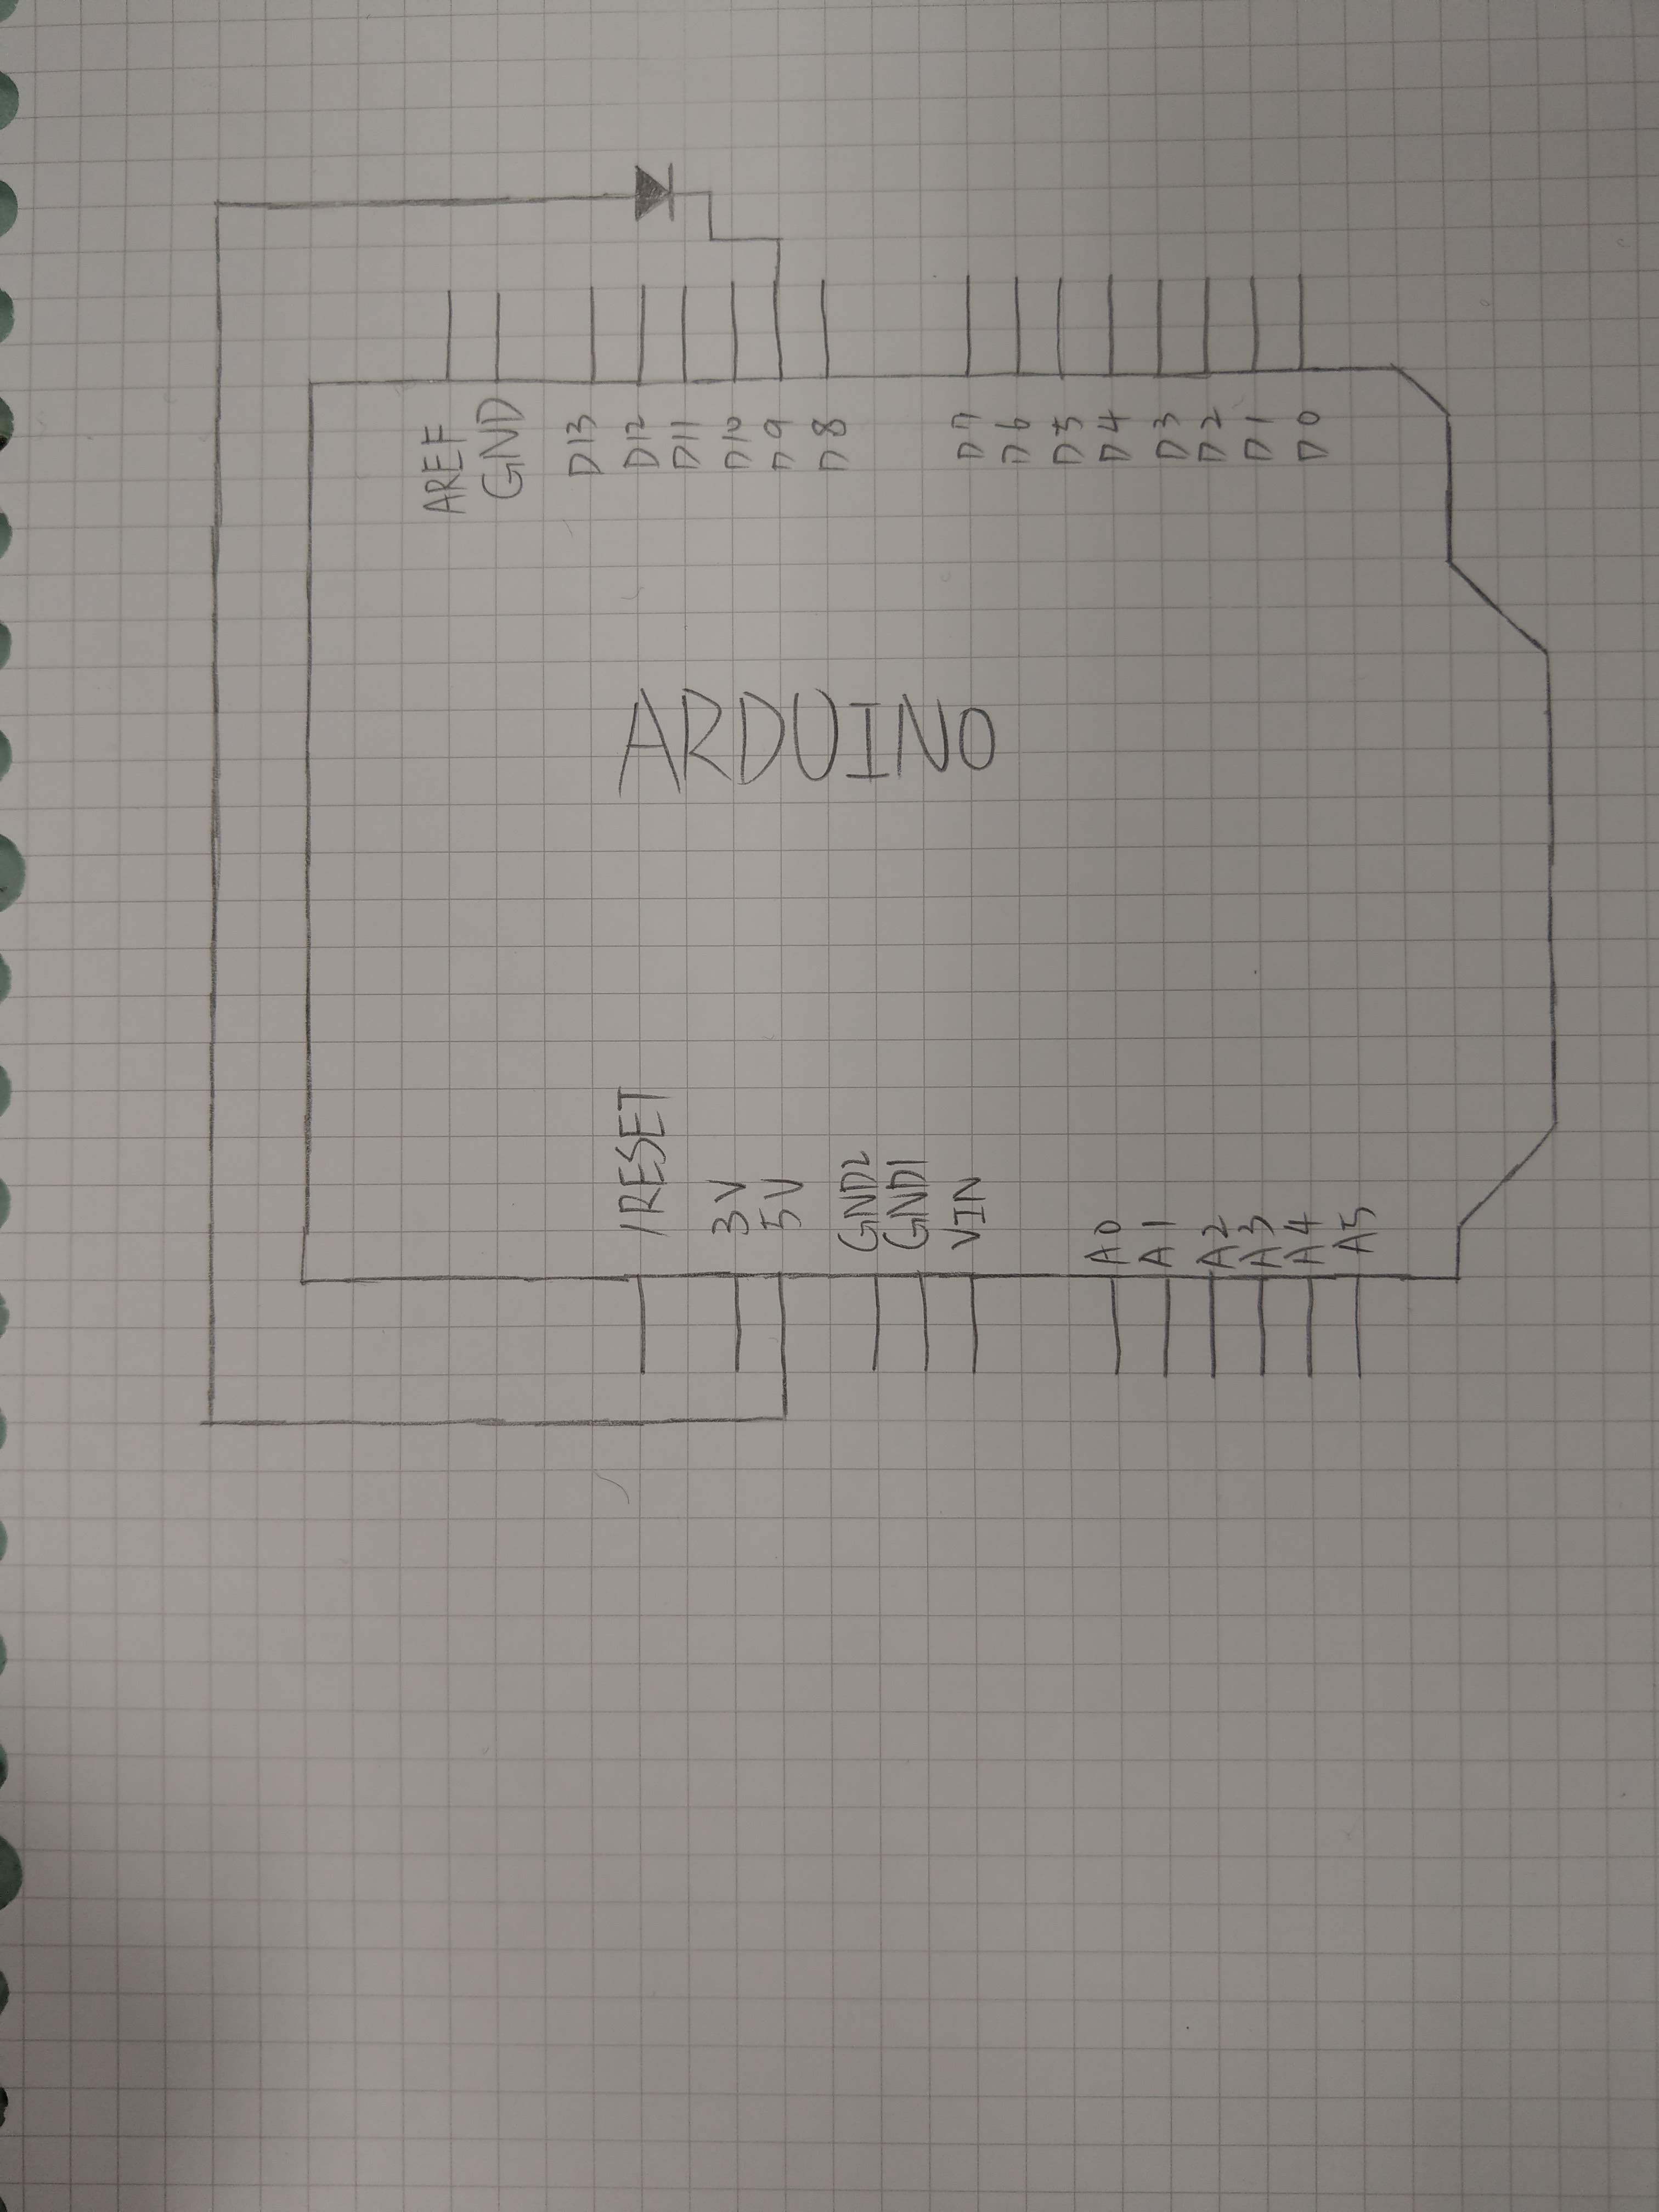 AREF
GND
D13
D12
D11
D10
D9
D8
D7
D6
D5
D4
D3
D2
D1
D0
ARDUINO
/RESET
3V
5V
GND2
GND1
VIN
A0
A1
A2
A3
A4
A5